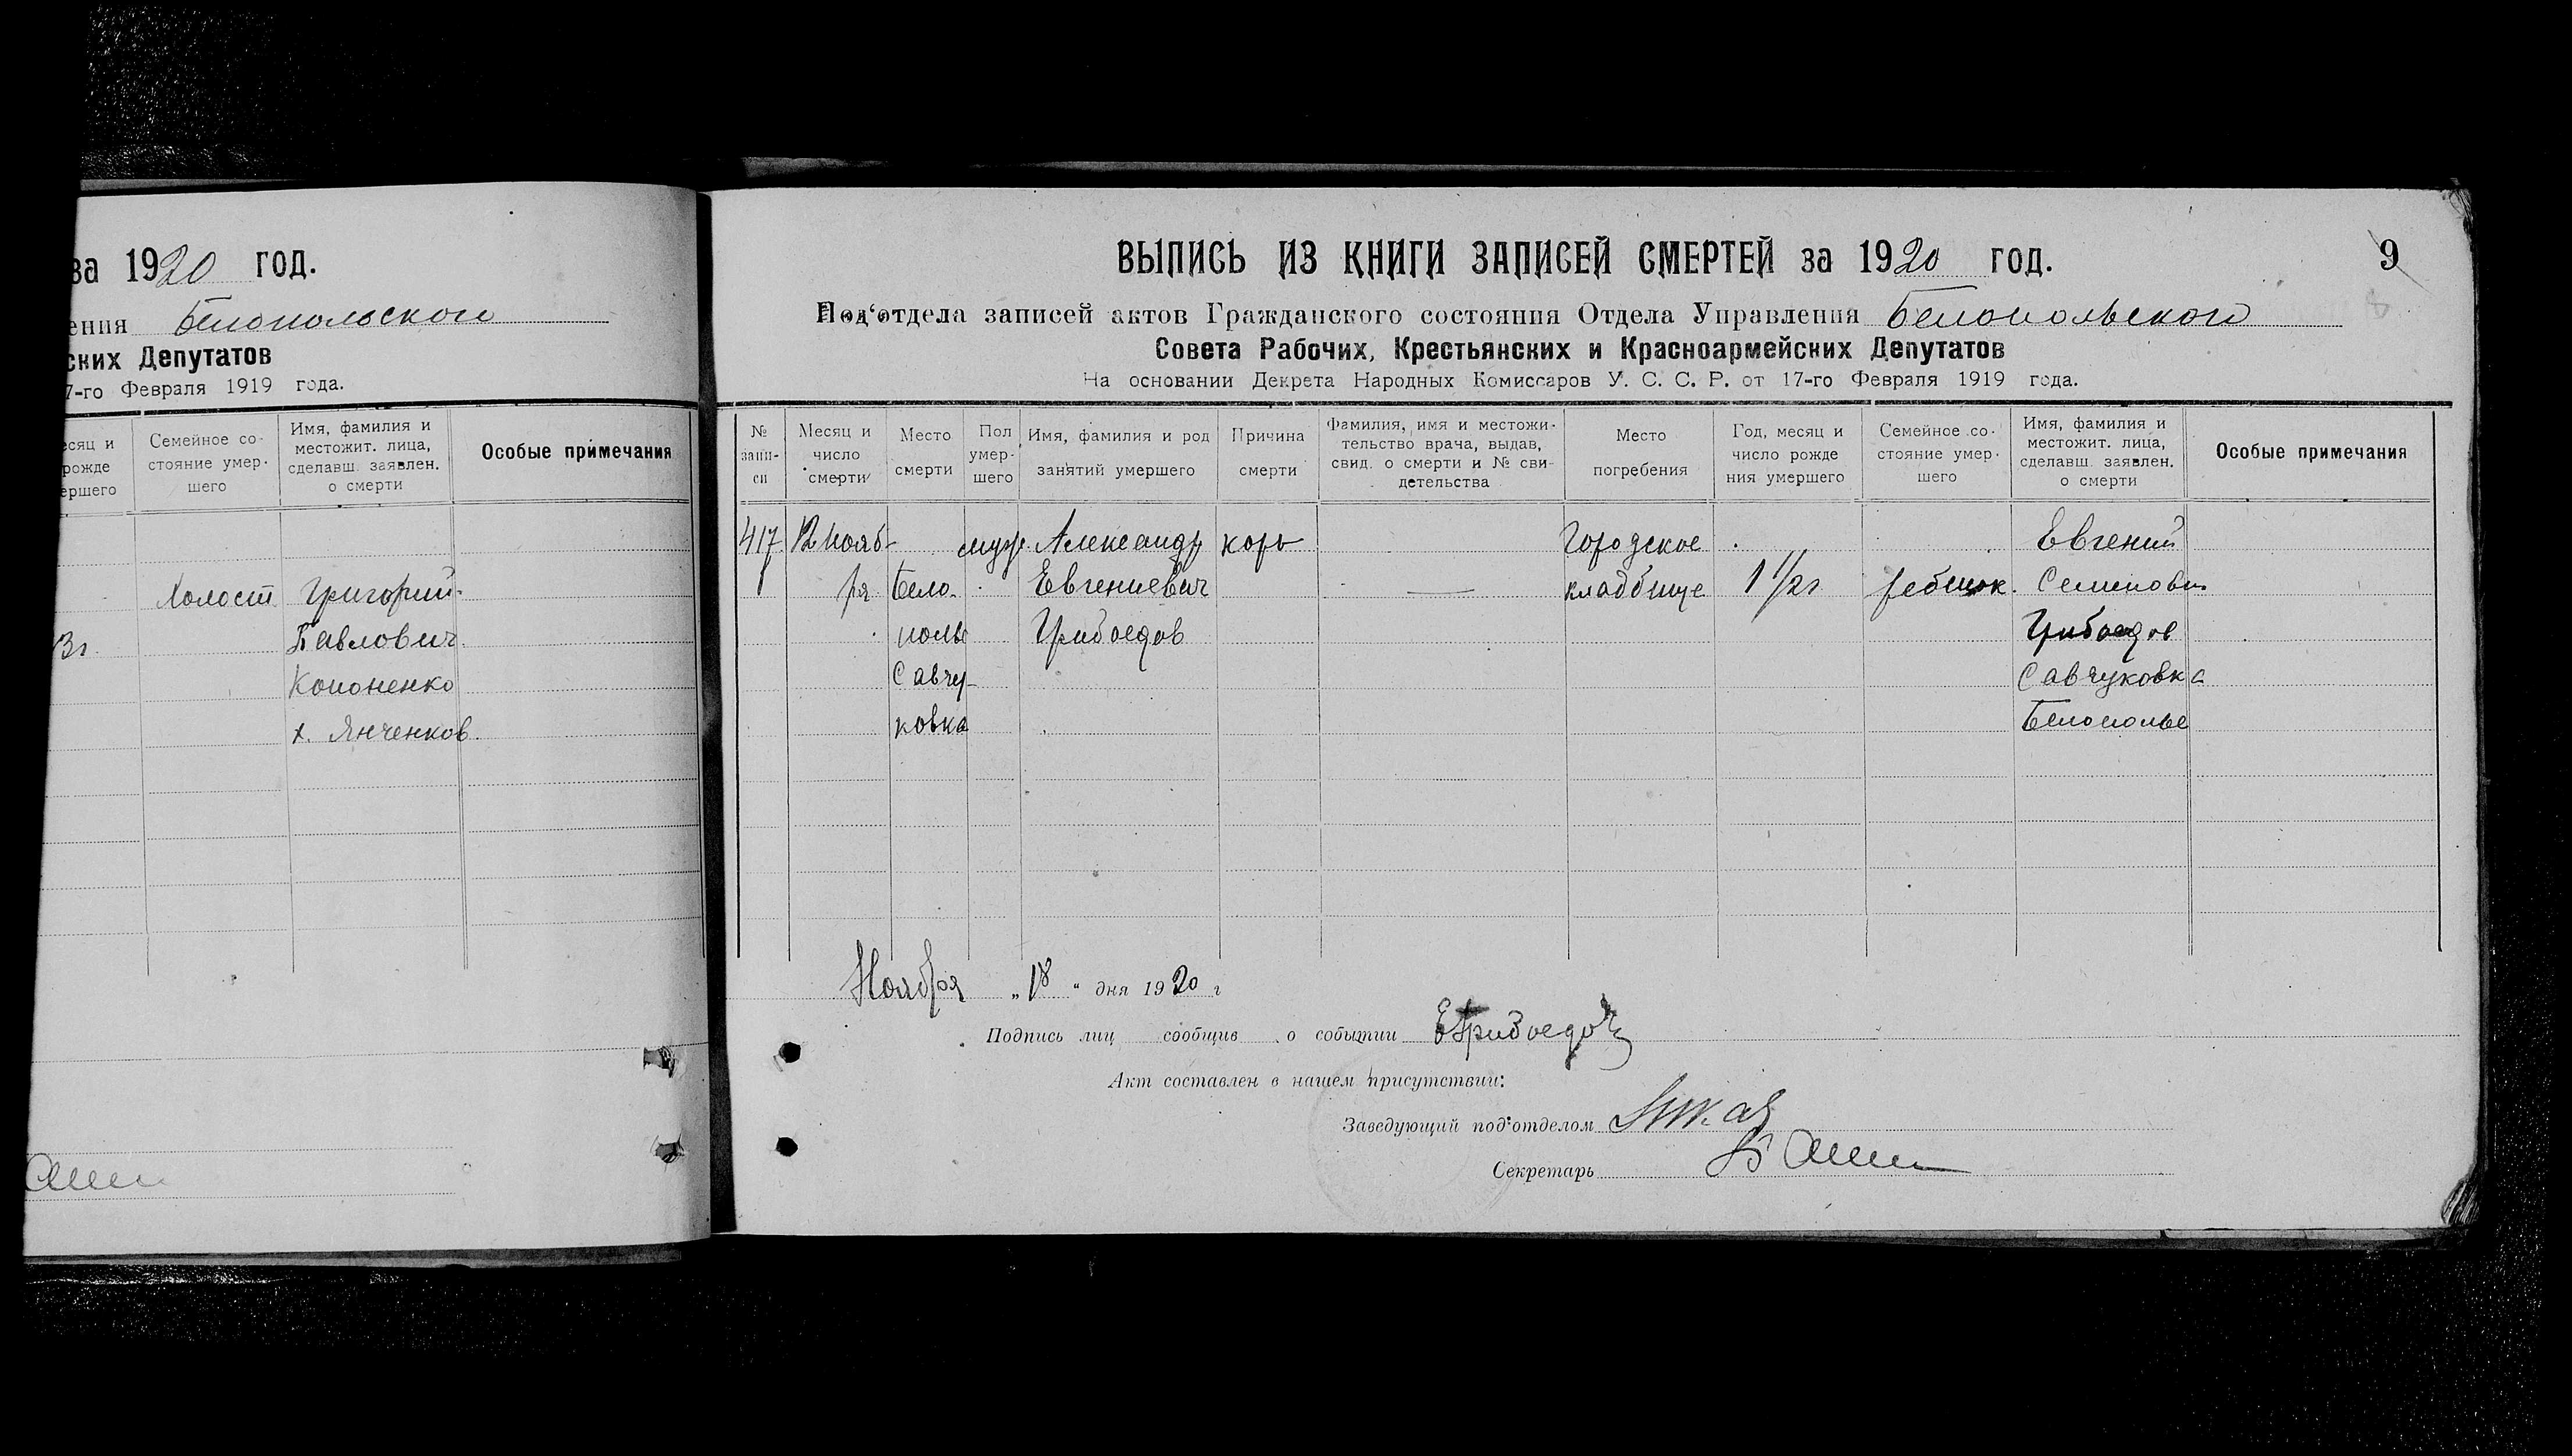 за 1920 год.
ения Белопольского
ских Депутатов
7-го Февраля 1919 года.
есяц и
рожде
ершего
Семейное со-
стояние умер-
шего
Имя, фамилия и
местожит. лица,
сделавш. заявлен.
о смерти
Особые примечания
Холост
Григорий
Павлович
Кононенко
х. Янченков
3г.
9
ВЫПИСЬ ИЗ КНИГИ ЗАПИСЕЙ СМЕРТЕЙ за 1920 год.
Под‘отдела записей актов Гражданского состояния Отдела Управления Белопольского
Совета Рабочих, Крестьянских и Красноармейских Депутатов
На основании Декрета Народных Комиссаров У. С. С. Р. от 17-го Февраля 1919 года.
№
запи-
си
Месяц и
число
смерти
Место
смерти
Пол
умер-
шего
Имя, фамилия и род
занятий умершего
Причина
смерти
Фамилия, имя и местожи-
тельство врача, выдав,
свид. о смерти и № сви-
детельства
Место
погребения
Год, месяц и
число рожде
ния умершего
Семейное со-
стояние умер-
шего
Имя, фамилия и
местожит. лица,
сделавш. заявлен.
о смерти
Особые примечания
417
12 Нояб-
ря
Бело-
полье
Савчу-
ковка
муж.
Александр
Евгениевич
Грибоедов
корь
—
Городское
кладбище
1 1/2 г
ребенок.
Евгений
Семенович
Грибоедов
Савчуковка
Белополье
Ноября „18“ дня 1920 г
Подпись лиц сообщив о событии ЕГрибоедов
Акт составлен в нашем присутствии:
Заведующий под‘отделом
Секретарь